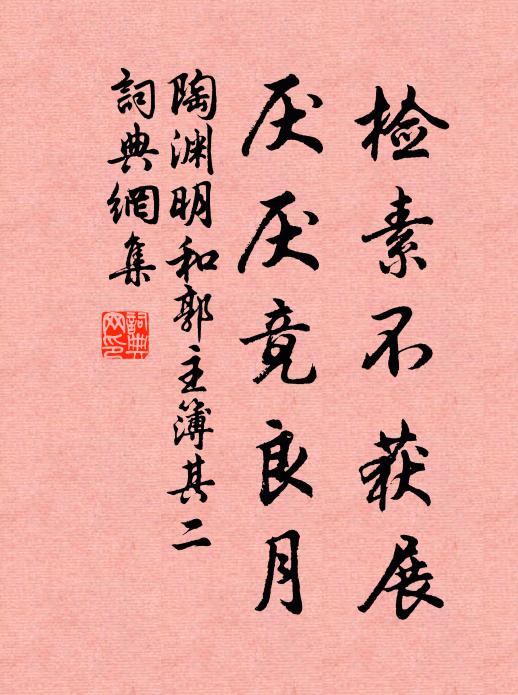 检素不获展
厌厌竟良月
陶渊明和郭主簿其二
詞典網集
詞典網印